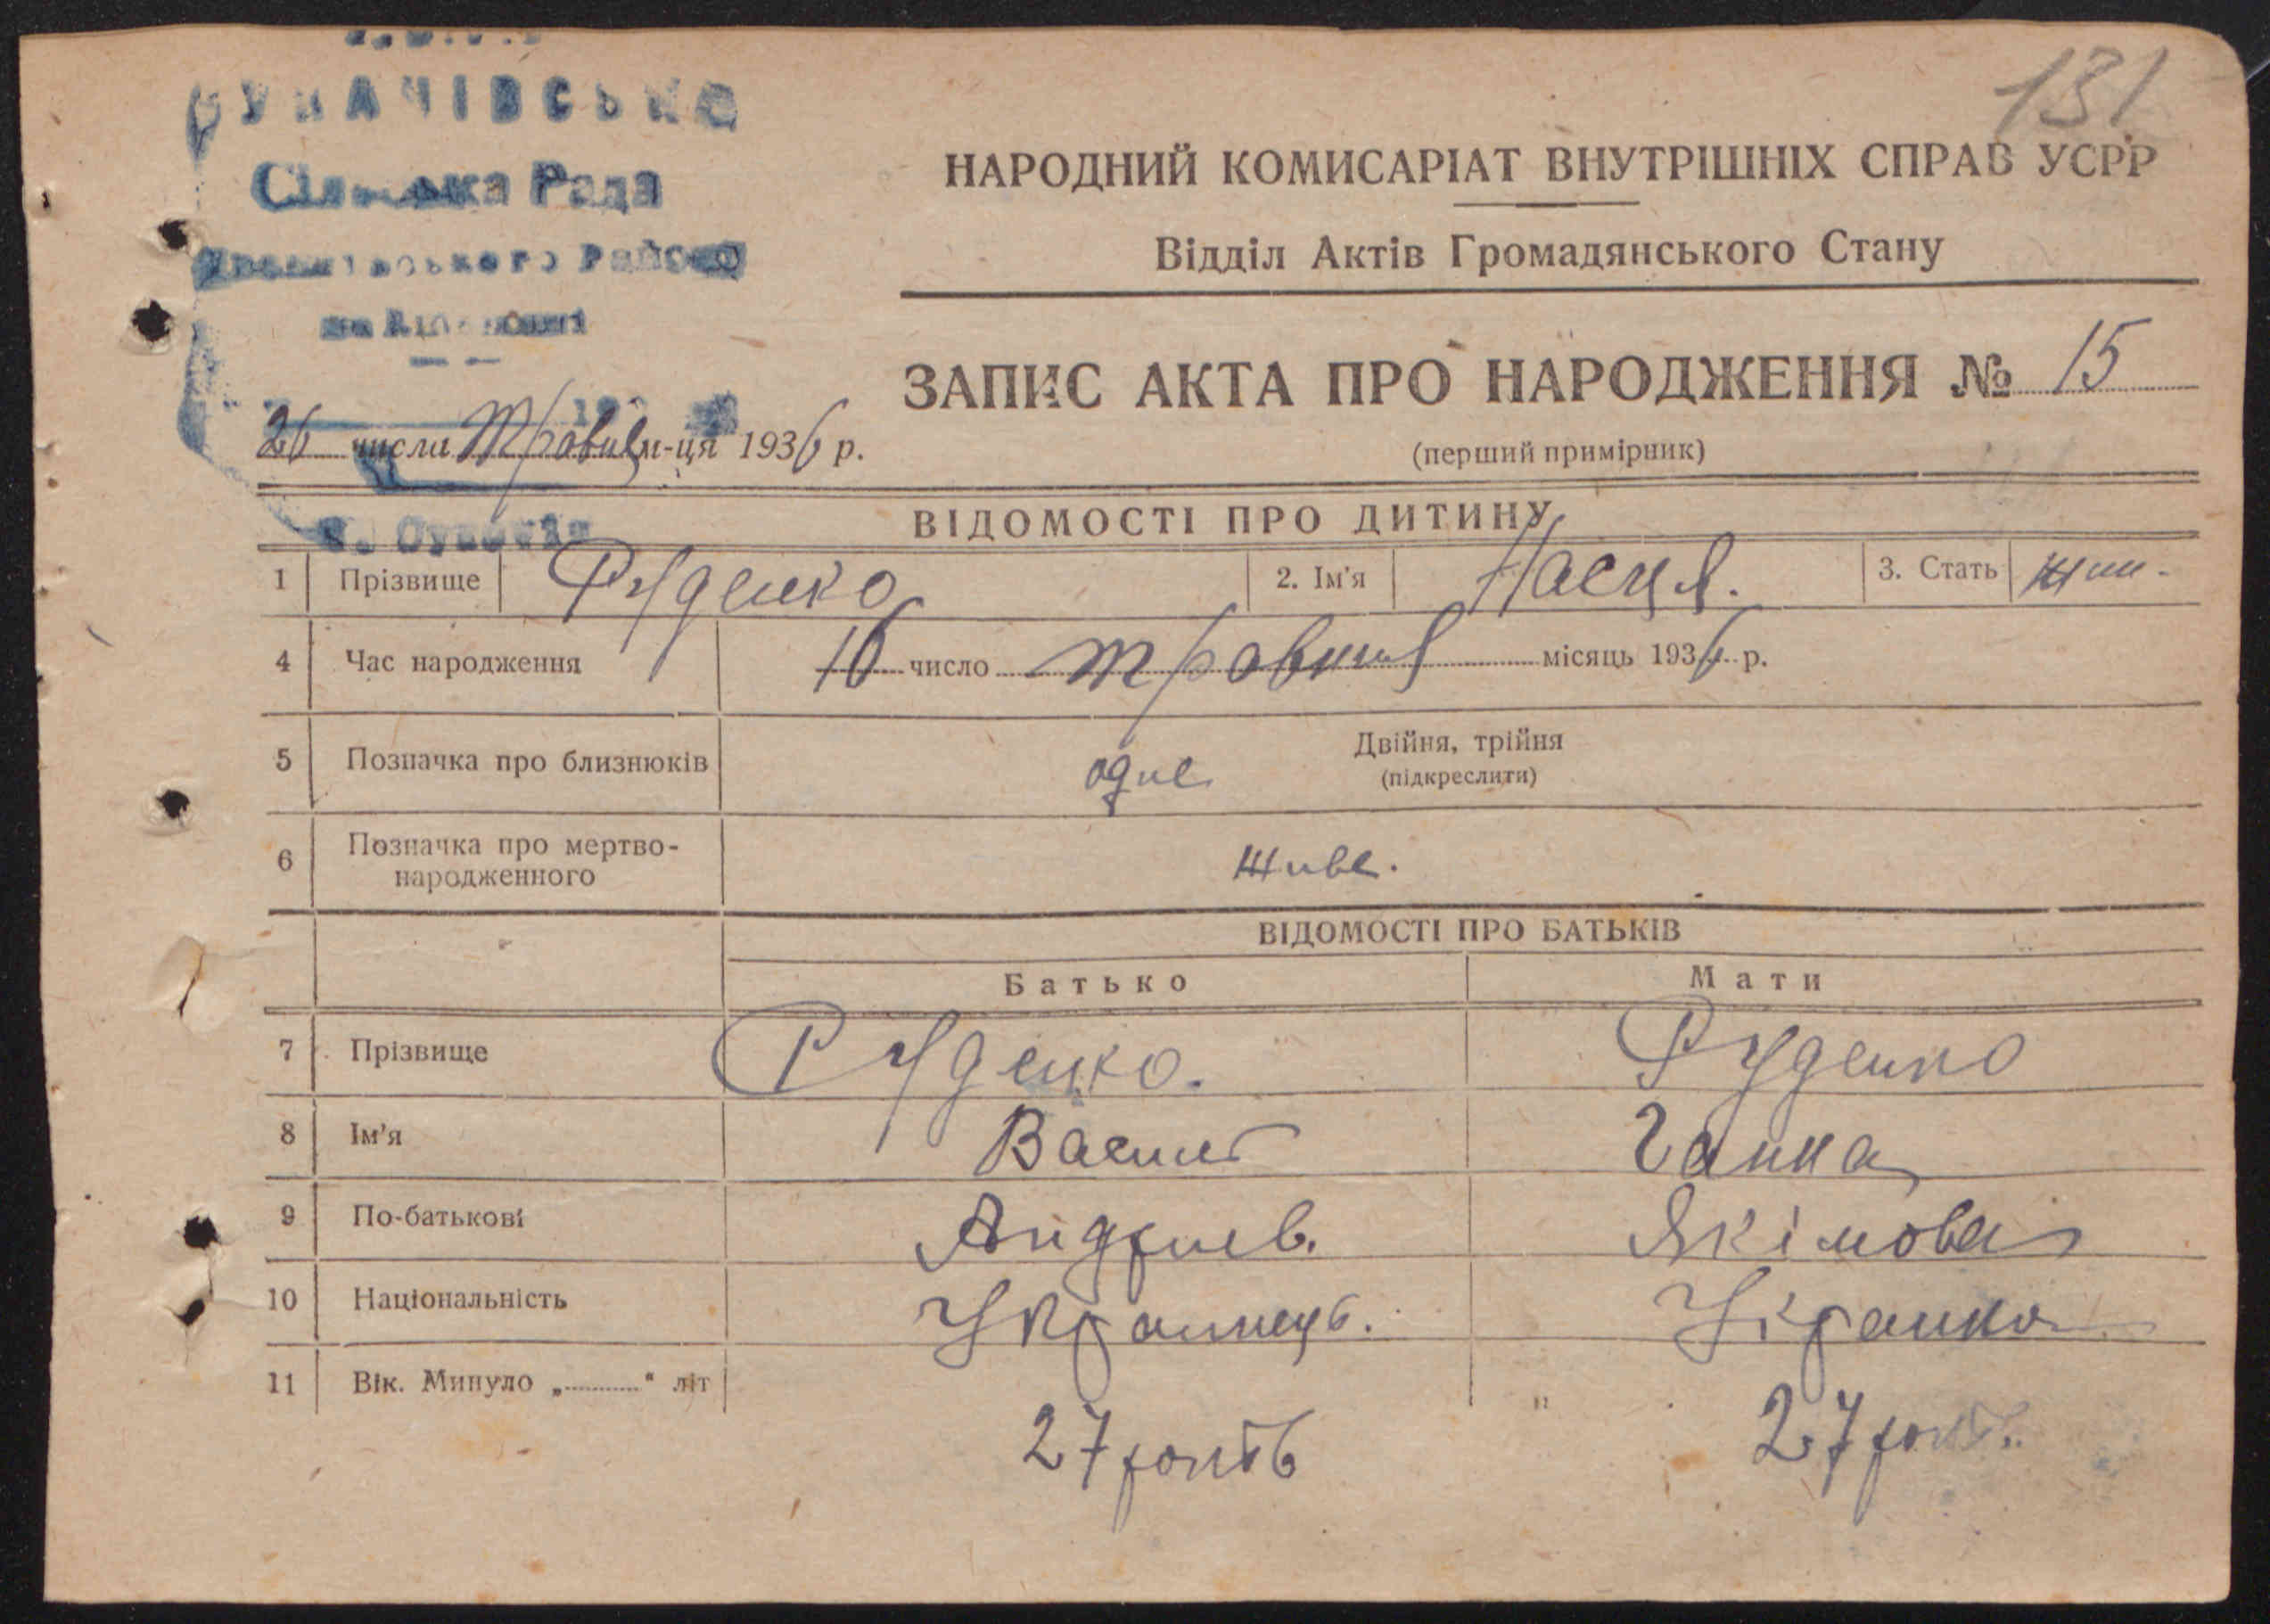 131
Сільська Рада
Району
НАРОДНИЙ КОМИСАРІАТ ВНУТРІШНІХ СПРАВ УСРР
Відділ Актів Громадянського Стану
ЗАПИС АКТА ПРО НАРОДЖЕННЯ № 15
(перший примірник)
26 числа Травня м-ця 1936 р.
ВІДОМОСТІ ПРО ДИТИНУ
1 Прізвище Руденко 2. Ім'я Насця. 3. Стать жін.
4 Час народження 16 число травня місяць 1936 р.
5 Позначка про близнюків одне Двійня, трійня
(підкреслити)
6 Позначка про мертво-
народженного живе.
ВІДОМОСТІ ПРО БАТЬКІВ
Батько Мати
7 Прізвище Руденко. Руденко
8 Ім'я Василь Ганна
9 По-батькові Андриев. Якімова
10 Національність Украинець. Украинка
11 Вік. Минуло „ “ літ "
27 років 27 рок.